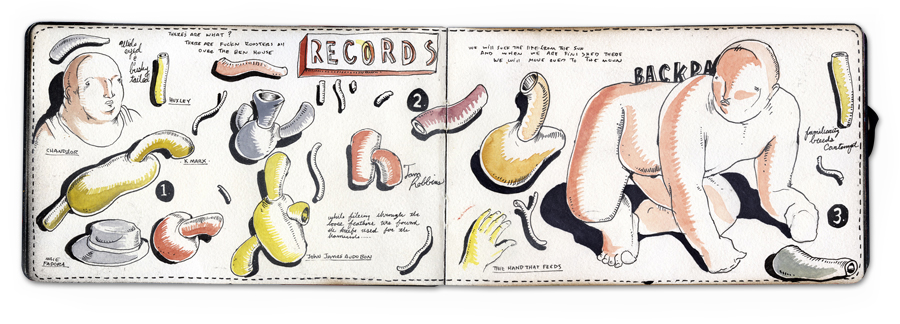 THERES ARE WHAT?
THERE ARE FUCKN ROOSTERS ALL
OVER THE DEN HOUSE
RECORDS
WE WILL SUCK THE LIFE FROM THE SUN
AND WHEN WE ARE FINISHED THERE
WE WILL MOVE OVER TO THE MOON
BACKPA
eyed
&
bushy
tailed
HUXLEY
CHANDLER
K MARX
1.
2.
3.
Tom
Robbins
familiarity
breeds
Contempt
while filtering through the
loose feathers we found
used for the
JOHN JAMES AUDUBON
THE HAND THAT FEEDS
FEDORA